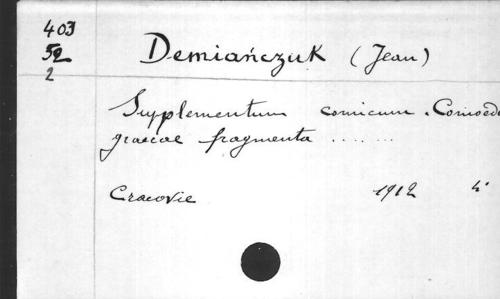 403
52
2
Demiańczuk (Jean)
Supplementum comicum. Comoed
graecae fragmenta ... ...
Cracovie 1912 4°